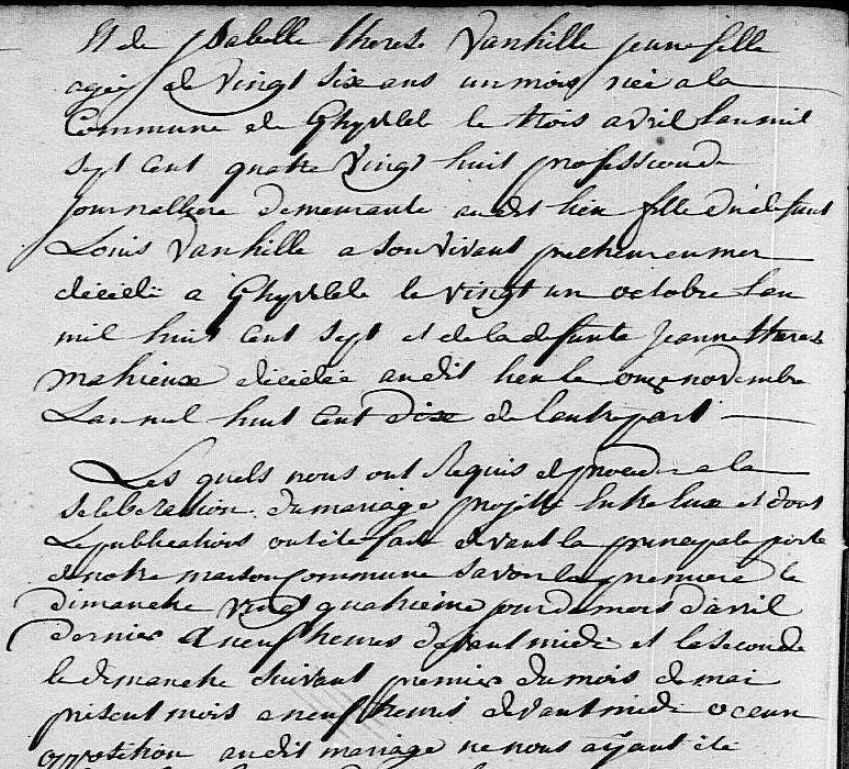 Et de Isabelle therese Vanhille jeune fille
agée de vingt six ans un mois née a la
Commune de Ghyvelde le trois avril l'an mil
sept cent quatre vingt huit profession de
journalliere demeurante audit lieu fille du defunt
Louis Vanhille a son vivant pecheur en mer
décédé a Ghyvelde le vingt un octobre l'an
mil huit cent sept et de la defunte Jeanne therese
mahieux décédée audit lieu le onze novembre
L'an mil huit cent dix de l'autre part
Les quels nous ont Requis de proceder a la
selebration du mariage projetté entre eux et dont
les publications ont été fait devant la principale porte
de notre maison commune savoir la premiere le
dimanche vingt quatrieme jour du mois d'avril
dernier a neuf heures devant midi et la seconde
le dimanche suivant premier du mois de mai
présent mois a neuf heures devant midi occun
opposition audit mariage ne nous ayant été